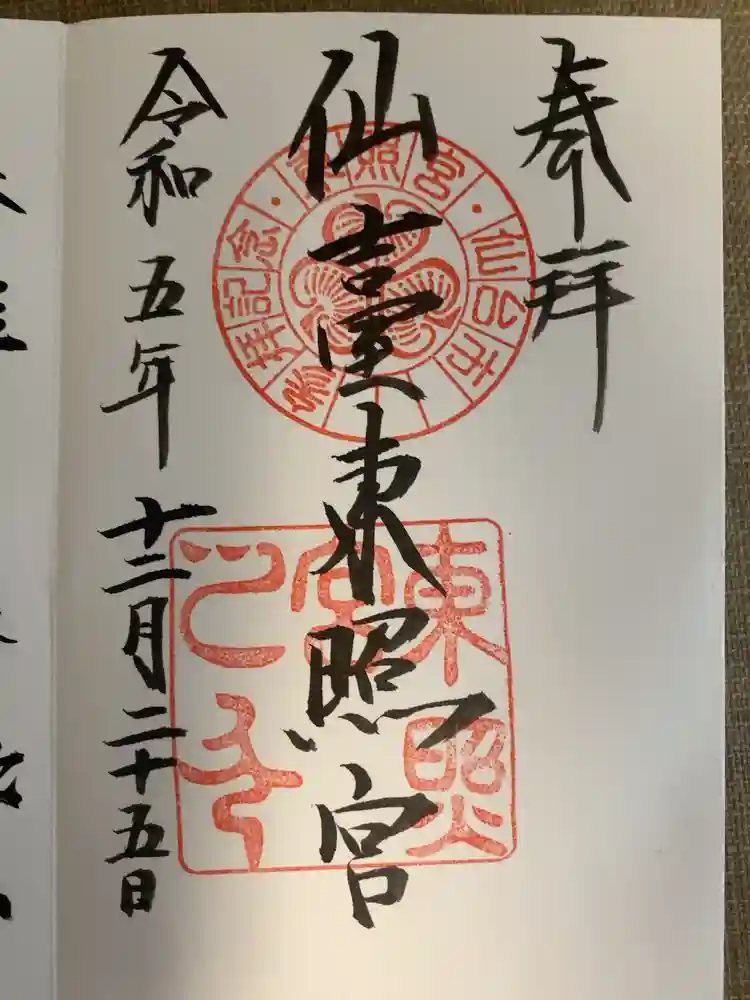 奉拝
仙臺東照宮
令和五年十二月二十五日
東照宮・仙台市
参拝記念・
東照宮之印